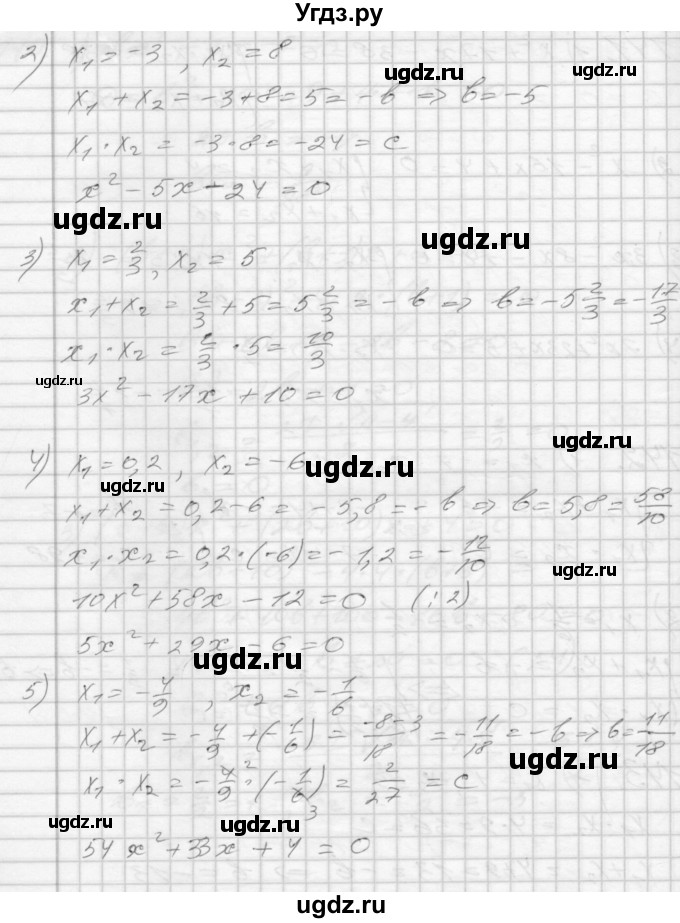 Угдз.ру
2) x₁ = -3 , x₂ = 8
ugdz.ru ugdz.ru
x₁ + x₂ = -3+8 = 5 = -b ⇒ b = -5
x₁ · x₂ = -3 · 8 = -24 = c
x² - 5x - 24 = 0
ugdz.ru ugdz.ru
3) x₁ = 2/3 , x₂ = 5
x₁ + x₂ = 2/3 + 5 = 5 2/3 = -b ⇒ b = -5 2/3 = -17/3
x₁ · x₂ = 2/3 · 5 = 10/3
ugdz.ru
3x² - 17x + 10 = 0
ugdz.ru
4) x₁ = 0,2 , x₂ = -6
ugdz.ru ugdz.ru
x₁ + x₂ = 0,2 - 6 = -5,8 = -b ⇒ b = 5,8 = 58/10
x₁ · x₂ = 0,2 · (-6) = -1,2 = -12/10
ugdz.ru
10x² + 58x - 12 = 0 (:2)
5x² + 29x - 6 = 0
ugdz.ru
5) x₁ = -4/9 , x₂ = -1/6
x₁ + x₂ = -4/9 + (-1/6) = -8-3/18 = -11/18 = -b ⇒ b = 11/18
ugdz.ru
x₁ · x₂ = -4/9 ² · (-1/6 3) = 2/27 = c
ugdz.ru ugdz.ru
54x² + 33x + 4 = 0
ugdz.ru